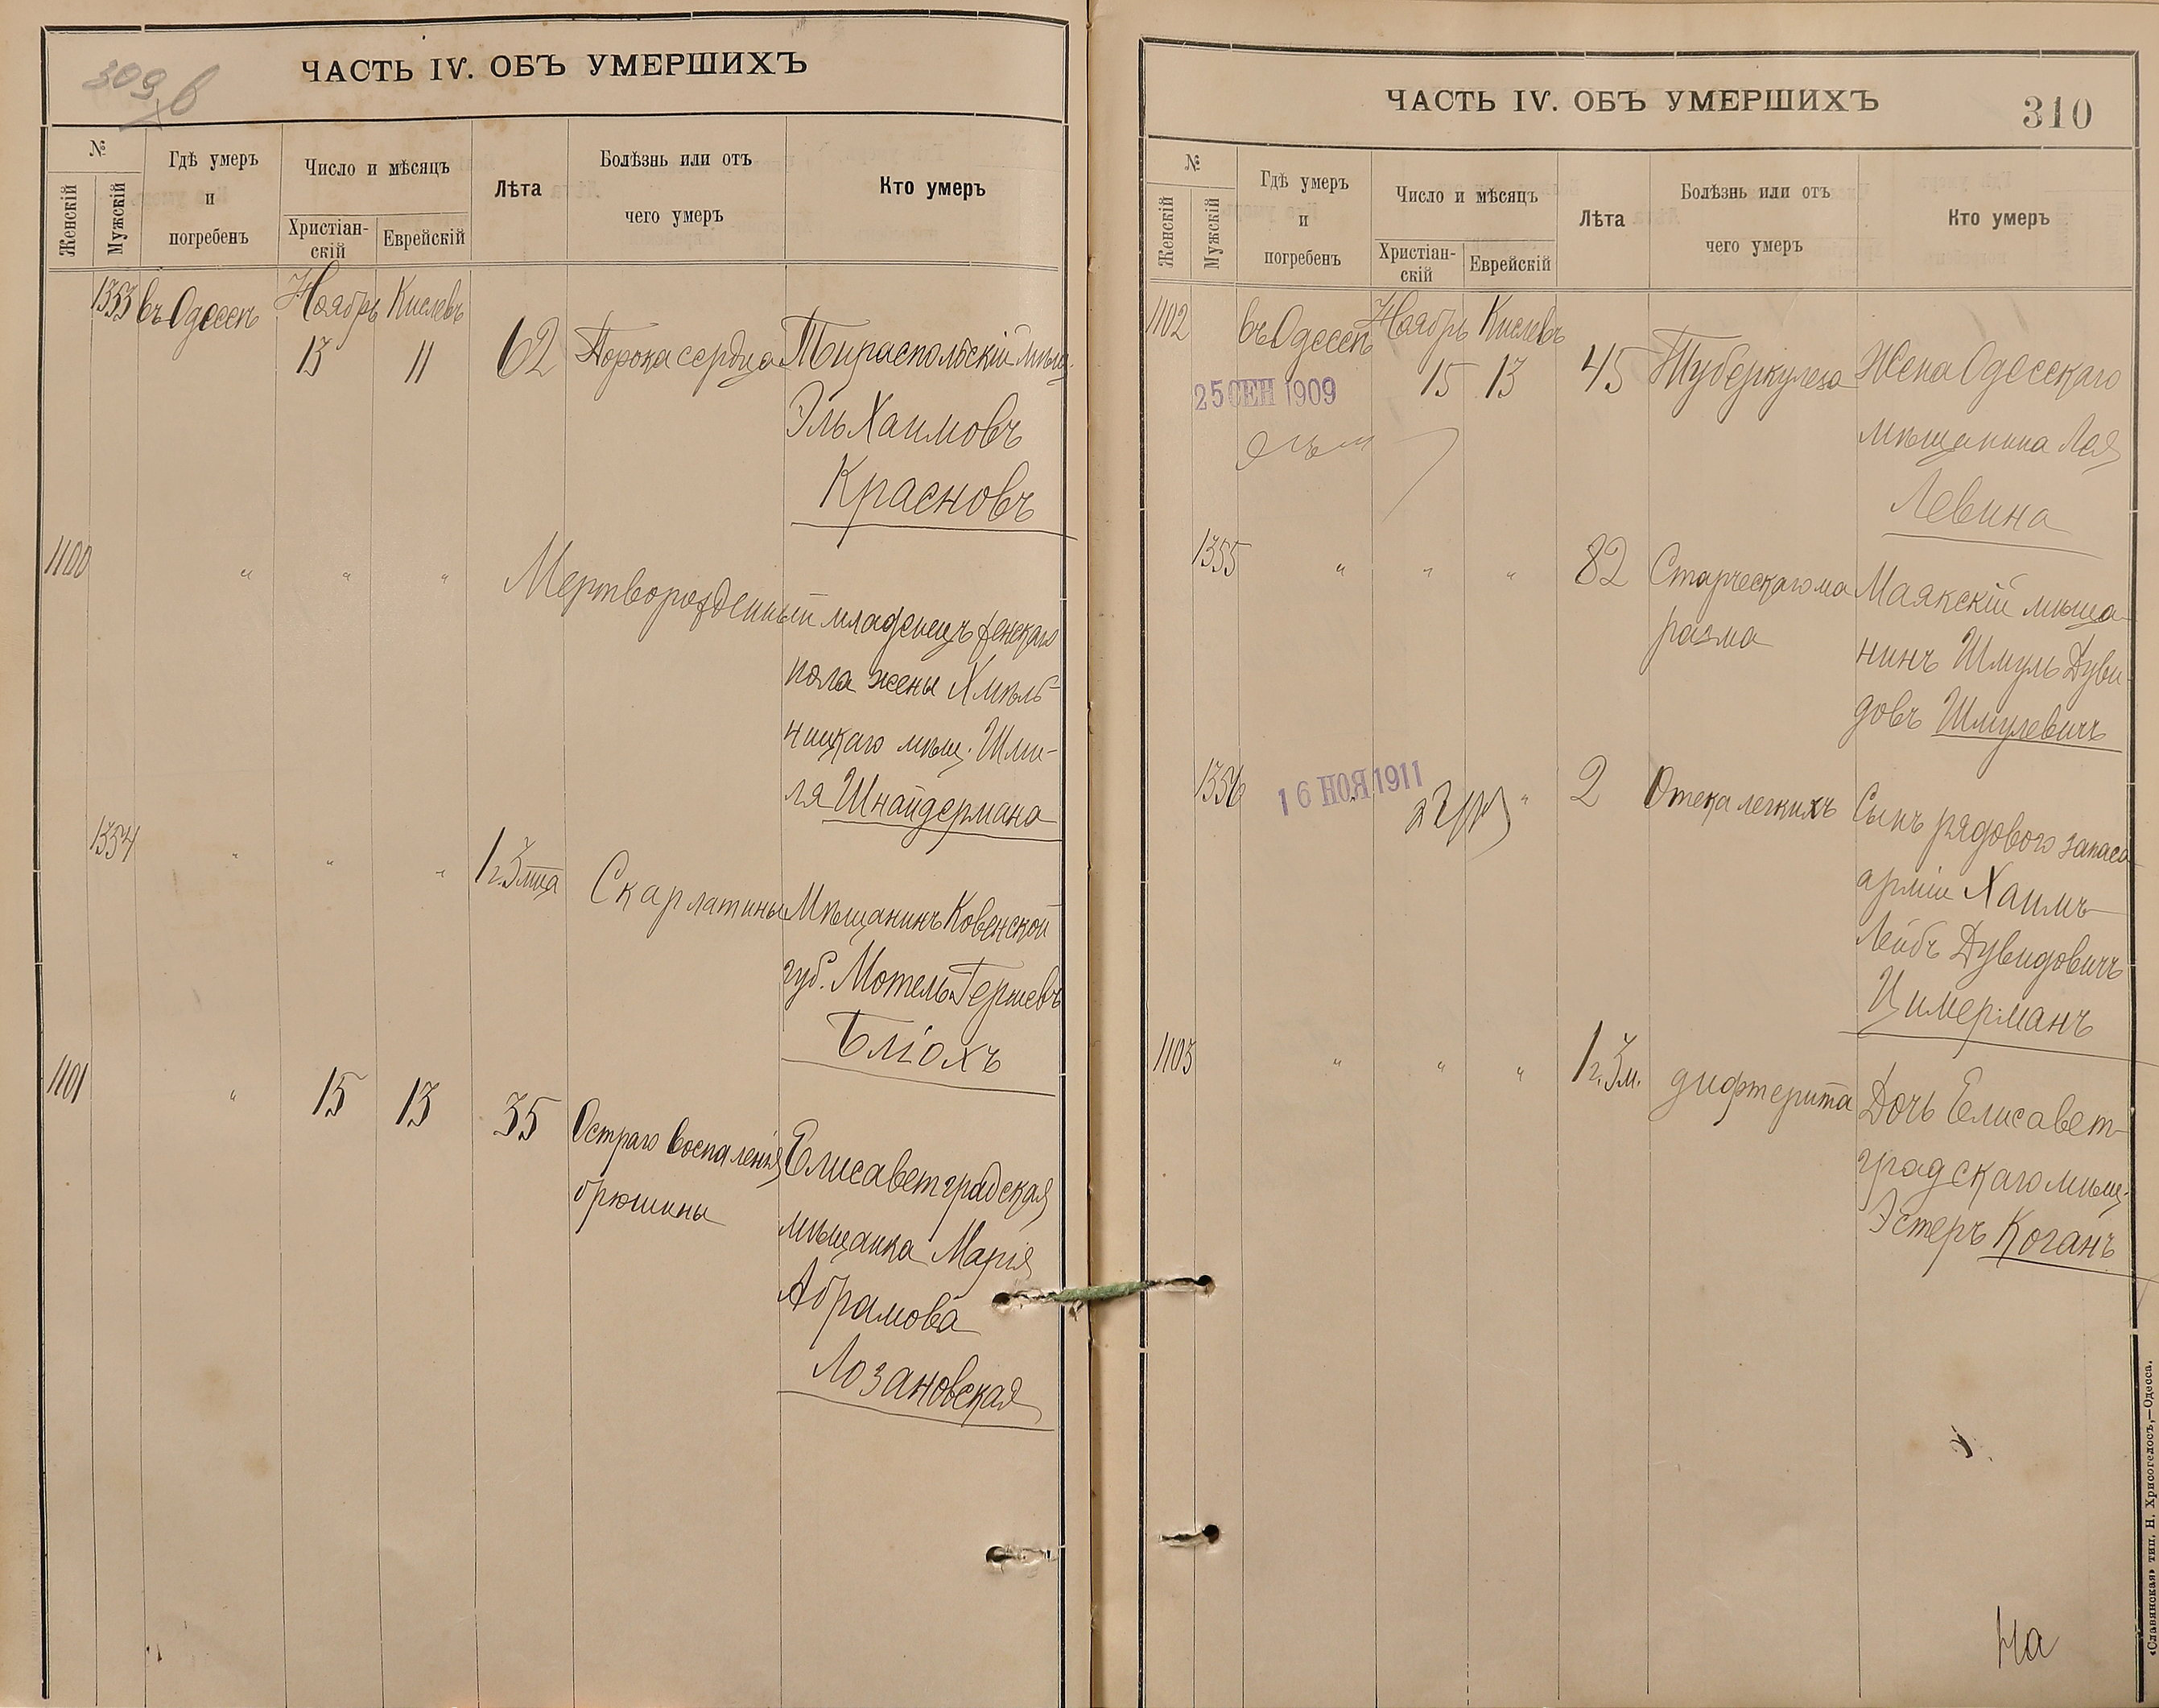 309 в
ЧАСТЬ IV. ОБЪ УМЕРШИХЪ
№
Женскій
Мужскій
Гдѣ умеръ
и
погребенъ
Число и мѣсяцъ
Христіан-
скій
Еврейскій
Лѣта
Болѣзнь или отъ
чего умеръ
Кто умеръ
1353 въ Одессѣ Ноябрь Кислевъ
13 11 62 Порока сердца Тираспольскій мѣщ.
Эль Хаимовъ
Красновъ
1100 " " " Мертворожденный младенецъ женскаго
пола жены Хмѣль-
ницкаго мѣщ. Шми-
ля Шнайдермана
1354 " " " 1 г. 3 мца Скарлатины Мѣщанинъ Ковенской
губ. Мотель Гершевъ
Бліохъ
1101 " 15 13 35 Остраго воспаленія Елисаветградская
брюшины мѣщанка Марія
Абрамова
Лозановская
ЧАСТЬ IV. ОБЪ УМЕРШИХЪ
310
№
Женскій
Мужскій
Гдѣ умеръ
и
погребенъ
Число и мѣсяцъ
Христіан-
скій
Еврейскій
Лѣта
Болѣзнь или отъ
чего умеръ
Кто умеръ
1102 въ Одессѣ Ноябрь Кислевъ
15 13 45 Туберкулеза Жена Одесскаго
25 СЕН 1909
мѣщанина Лея
Левина
1355 " " " 82 Старческаго ма Маякскій мѣща-
разма нинъ Шмуль Дуви-
довъ Шмулевичъ
1356 " " 2 Отека легкихъ Сынъ рядового запаса
16 НОЯ 1911
арміи Хаимъ-
Лейбъ Дувидовичъ
Цимерманъ
1103 " " " 1 г. 3 м. дифтерита Дочь Елисавет-
градскаго мѣщ.
Эстеръ Коганъ
На
«Славянская» тип. Н. Хрисогелосъ,—Одесса.